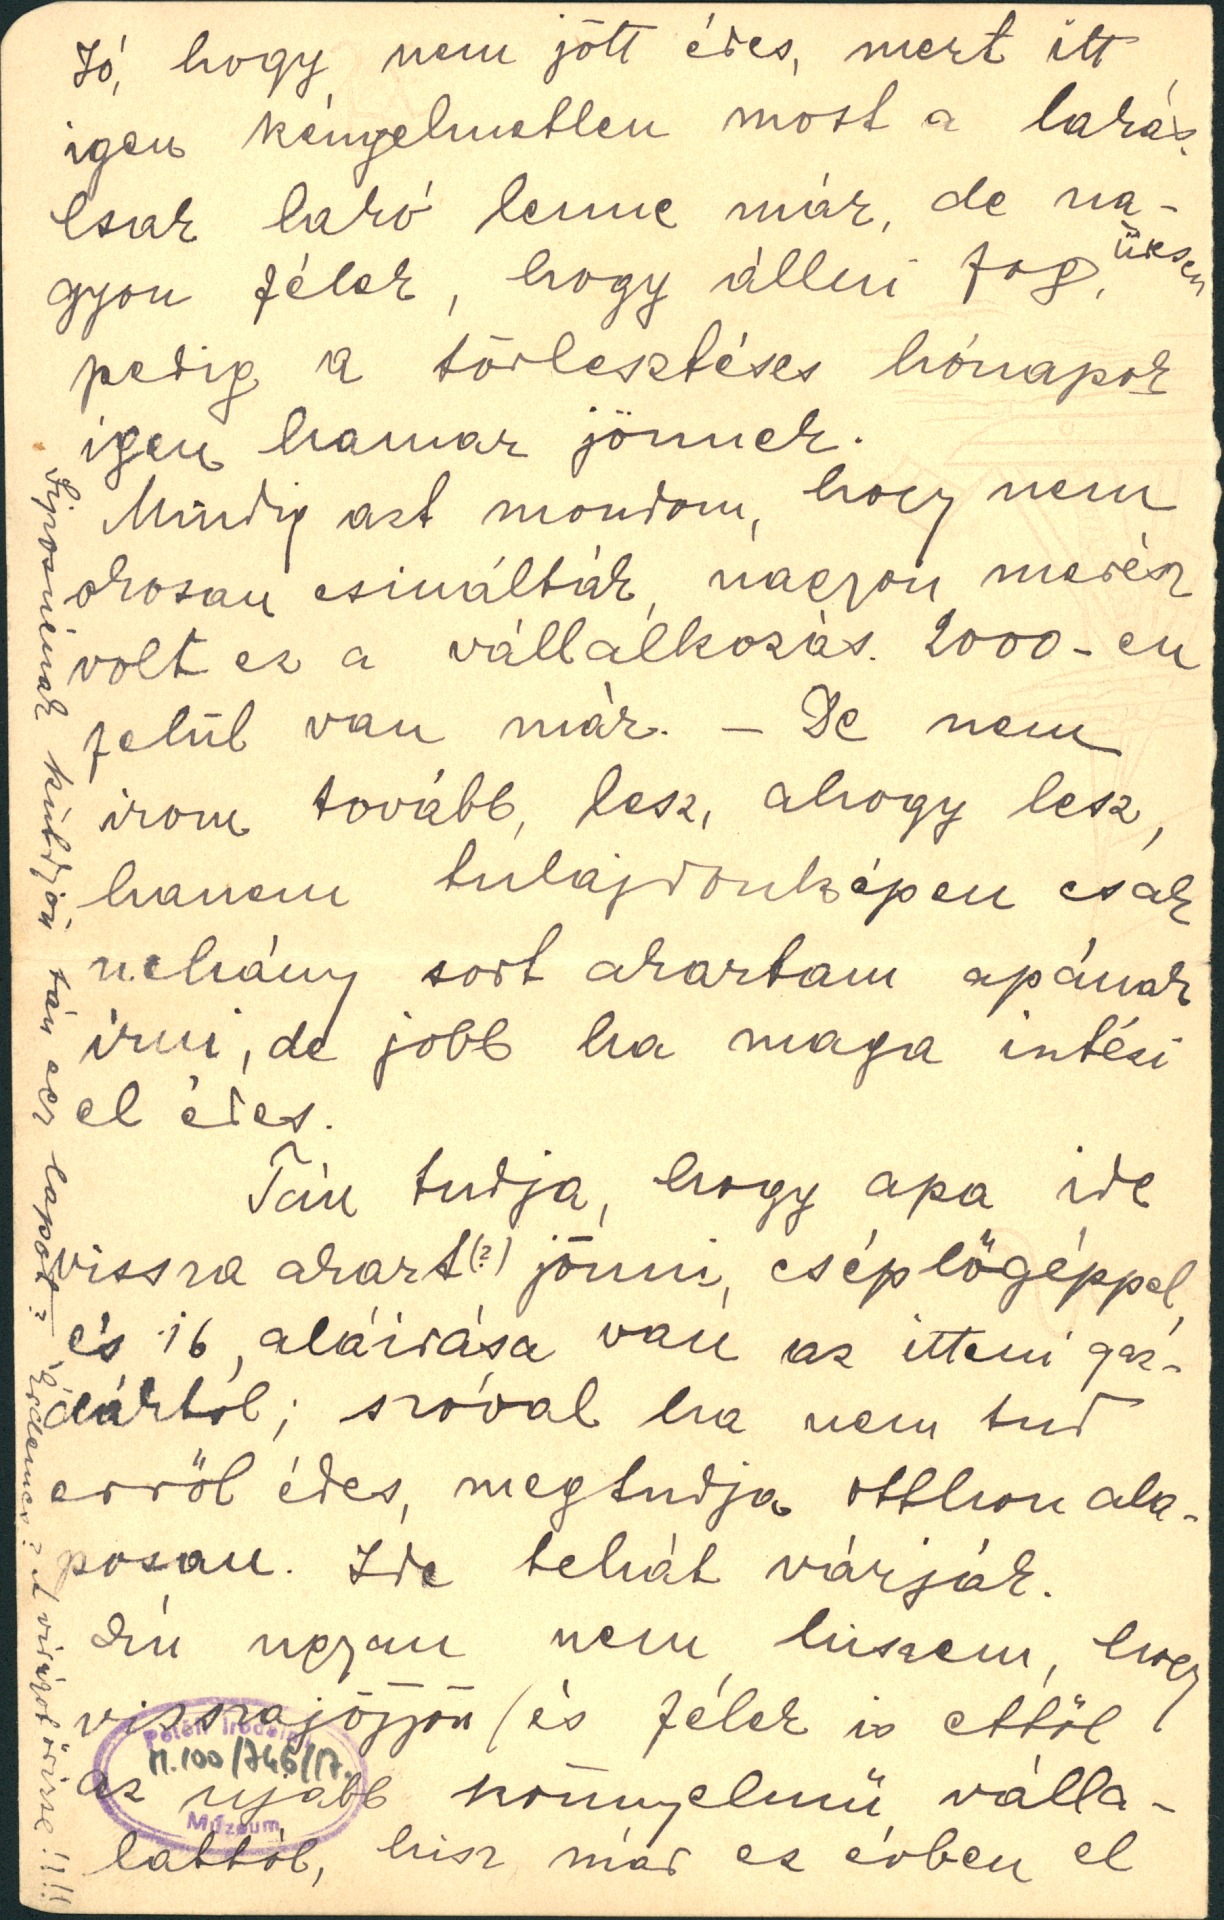 Jó, hogy nem jött édes, mert itt
igen kényelmetlen most a lakás.
Csak lakó lenne már, de na-
gyon félek, hogy állni fog, üresen
pedig a törlesztéses hónapok
igen hamar jönnek.
Mindig azt mondom, hogy nem
okosan csinálták, nagyon merész
volt ez a vállalkozás. 2000-en
felül van már. – De nem
irom tovább, lesz, ahogy lesz,
hanem tulajdonképen csak
néhány sort akartam apának
irni, de jobb ha maga intézi
el édes.
Tán tudja, hogy apa ide
vissza akart(?) jönni, cséplőgéppel,
és 16 aláirása van az itteni gaz-
dáktól; szóval ha nem tud
erről édes, megtudja otthon ala-
posan. Ide tehát várják.
Én ugyan nem hiszem, hogy
visszajöjjön (és félek is ettől
az ujabb könnyelmű válla-
lattól, hisz már ez évben el
Siposnénak küldjön tán egy lapot?
A virágot őrizze!!!!
Petőfi Irodalmi
M.100/746/17.
Múzeum